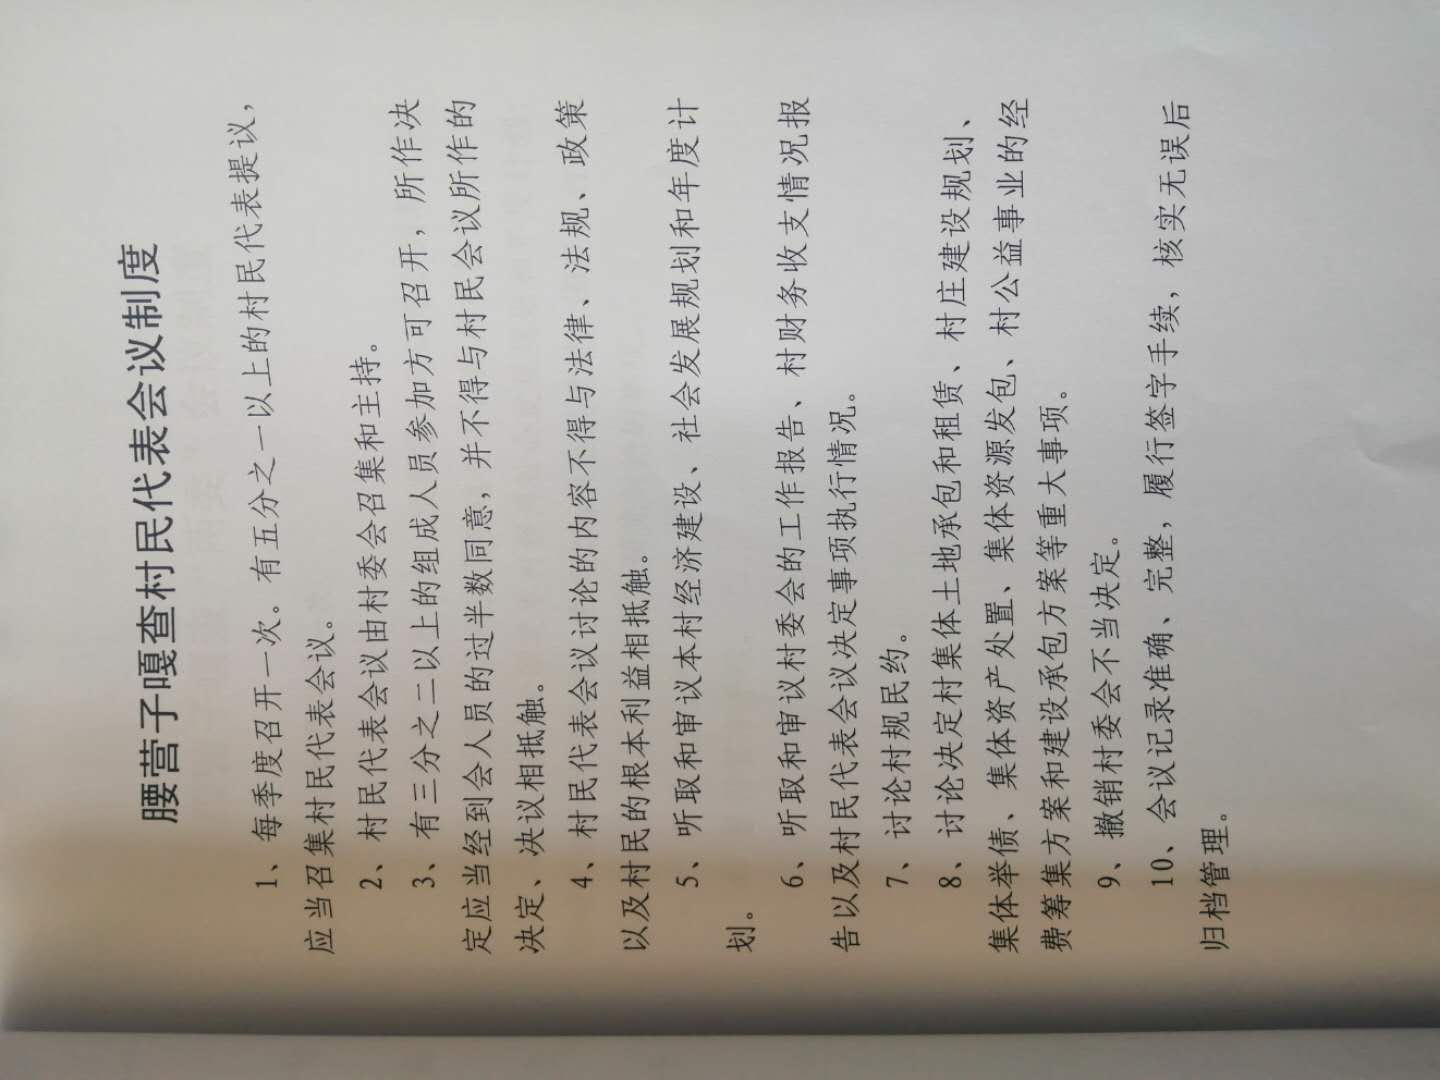 腰营子嘎查村民代表会议制度
1、每季度召开一次。有五分之一以上的村民代表提议，
应当召集村民代表会议。
2、村民代表会议由村委会召集和主持。
3、有三分之二以上的组成人员参加方可召开，所作决
定应当经到会人员的过半数同意，并不得与村民会议所作的
决定、决议相抵触。
4、村民代表会议讨论的内容不得与法律、法规、政策
以及村民的根本利益相抵触。
5、听取和审议本村经济建设、社会发展规划和年度计
划。
6、听取和审议村委会的工作报告、村财务收支情况报
告以及村民代表会议决定事项执行情况。
7、讨论村规民约。
8、讨论决定村集体土地承包和租赁、村庄建设规划、
集体举债、集体资产处置、集体资源发包、村公益事业的经
费筹集方案和建设承包方案等重大事项。
9、撤销村委会不当决定。
10、会议记录准确、完整，履行签字手续，核实无误后
归档管理。